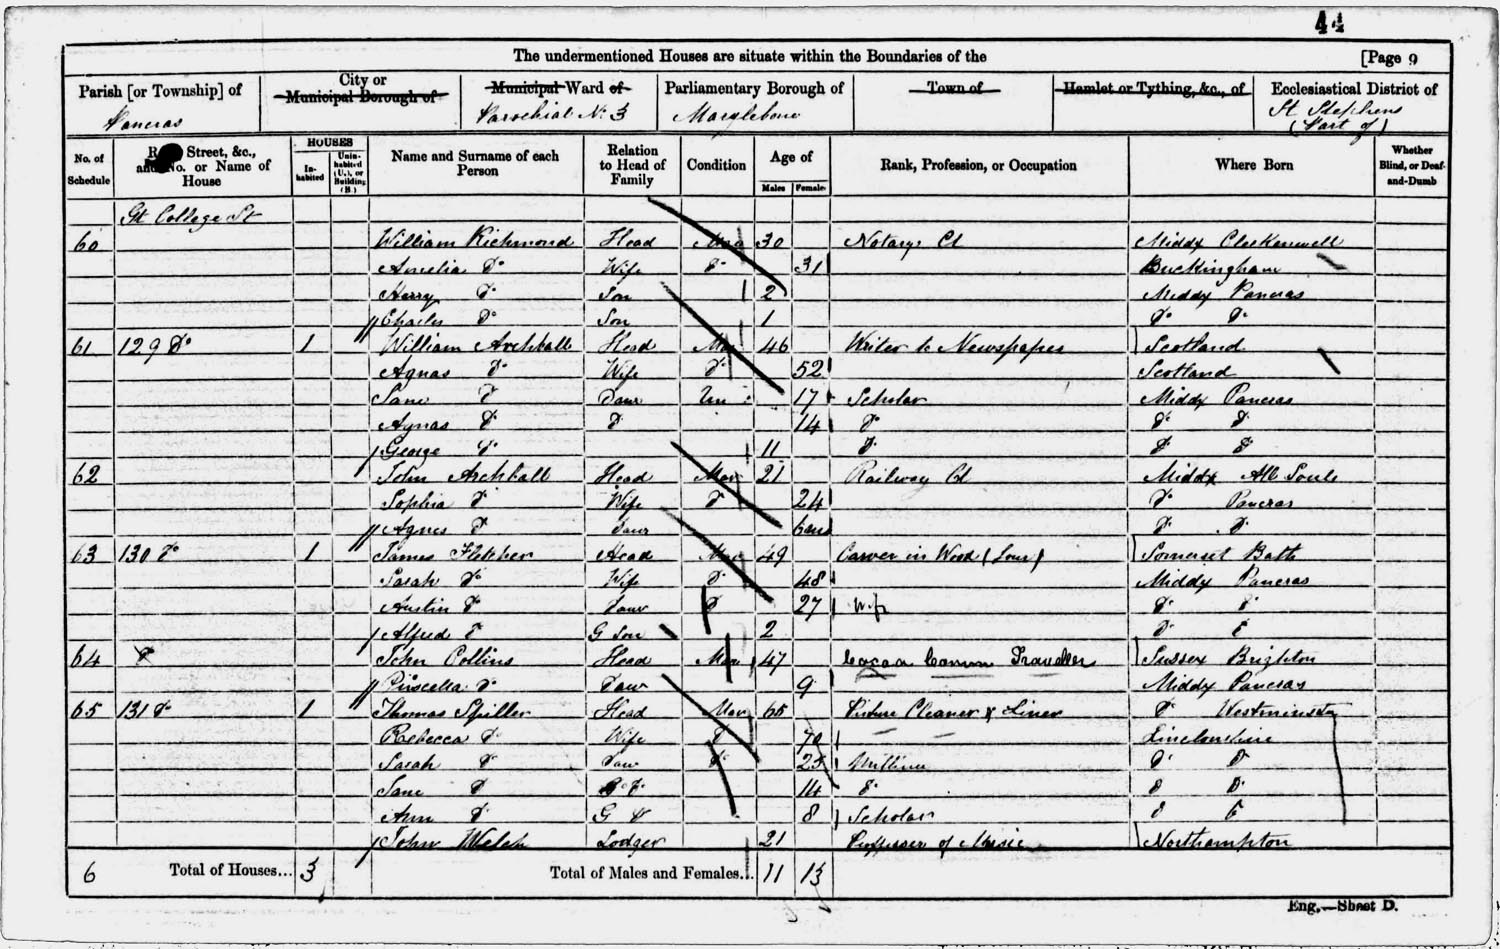 44
The undermentioned Houses are situate within the Boundaries of the [Page 9
Parish [or Township] of City or Municipal Borough of Municipal Ward of Parliamentary Borough of Town of Hamlet or Tything, &c., of Ecclesiastical District of
Pancras Parochial No. 3 Marylebone St Stephens (Part of)
No. of Schedule Street, &c., and No. or Name of House HOUSES Inhabited Uninhabited (U.), or Building (B.) Name and Surname of each Person Relation to Head of Family Condition Age of Males Females Rank, Profession, or Occupation Where Born Whether Blind, or Deaf-and-Dumb
Gt College St
60 William Richmond Head Mar 30 Notarys Cl Middx Clerkenwell
Amelia Do Wife Do 31 Buckingham
Harry Do Son 2 Middx Pancras
Charles Do Son 1 Do Do
61 129 Do 1 William Archball Head Mar 46 Writer to Newspaper Scotland
Agnas Do Wife Do 52 Scotland
Jane Do Daur Un 17 Scholar Middx Pancras
Agnas Do Do 14 Do Do Do
George Do 11 Do Do Do
62 John Archball Head Mar 21 Railway Cl Middx All Souls
Sophia Do Wife Do 24 Do Pancras
Agnes Do Daur 6 Do Do
63 130 Do 1 James Fletcher Head Mar 49 Carver in Wood Somerset Bath
Sarah Do Wife Do 48 Middx Pancras
Austin Do Daur Do 27 Wife Do Do
Alfred Do G Son 2 Do Do
64 Do John Collins Head Mar 47 Traveller Sussex Brighton
Priscella Do Daur 9 Middx Pancras
65 131 Do 1 Thomas Spiller Head Mar 65 Picture Cleaner & Liner Do Westminster
Rebecca Do Wife Do 70 Lincolnshire
Sarah Do Daur Do 25 Milliner Do Do
Jane Do Do 14 Do Do Do
Ann Do G Do 8 Scholar Do Do
John Welch Lodger 21 Professor of Music Northampton
6 Total of Houses... 3 Total of Males and Females... 11 13
Eng.—Sheet D.